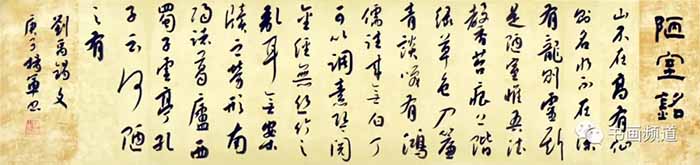 陋室銘
山不在高有仙
則名水不在深
有龍則靈斯
是陋室惟吾德
馨苔痕上階
綠草色入簾
青談笑有鴻
儒往来無白丁
可以調素琴閱
金經無絲竹之
亂耳無案
牘之勞形南
陽諸葛廬西
蜀子雲亭孔
子云何陋
之有
劉禹錫文
庚子
书画频道